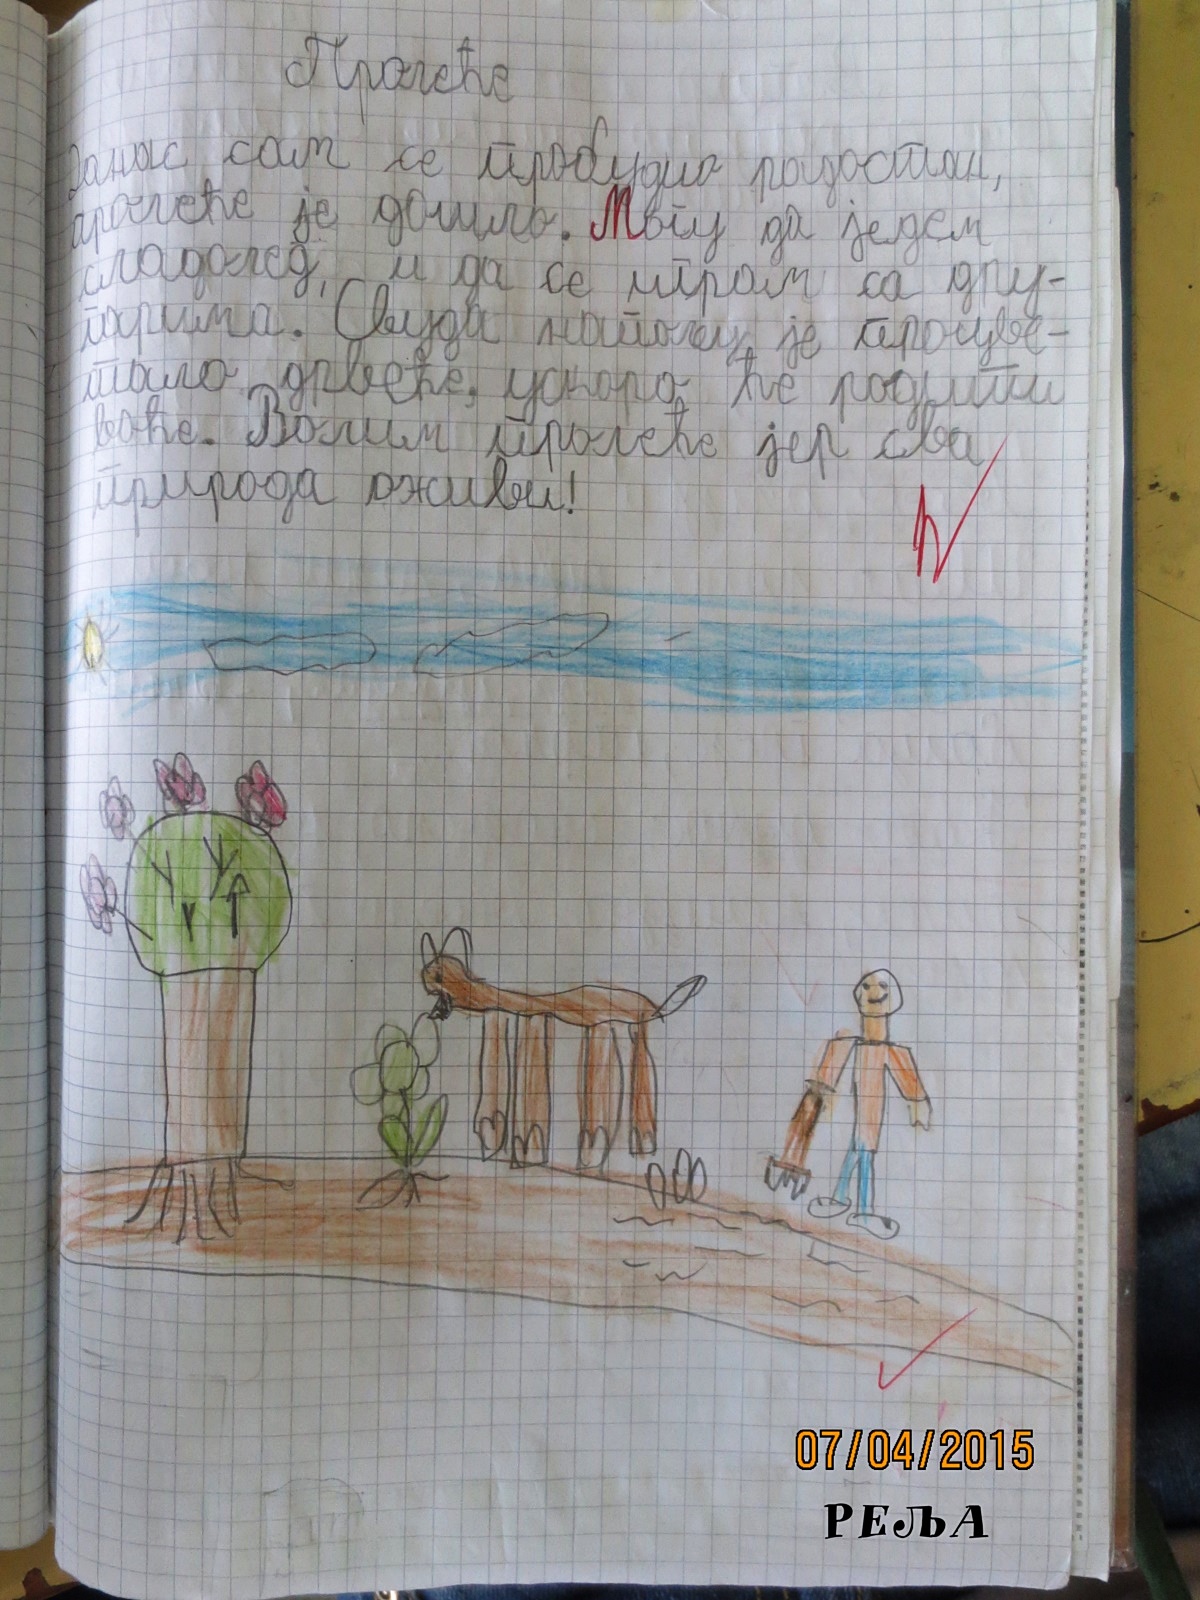 Пролеће
Данас сам се пробудио радостан,
пролеће је дошло. Могу да једем
сладолед, и да се играм са дру-
гарима. Свуда наоколу је процве-
тало дрвеће, ускоро ће родити
воће. Волим пролеће јер сва
природа оживи!
07/04/2015
РЕЉА